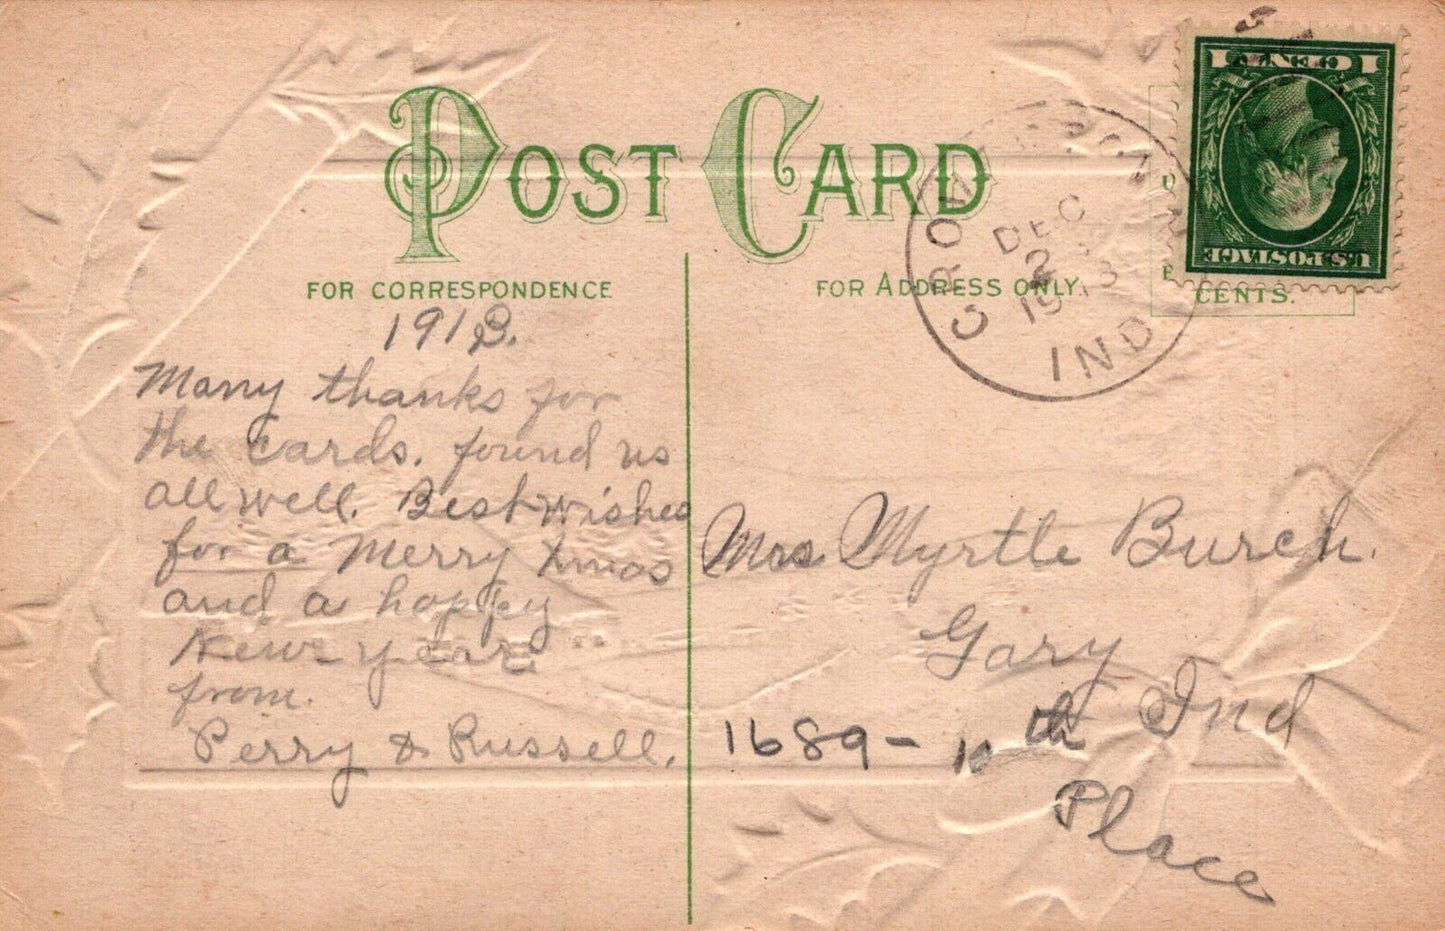 POST CARD
FOR CORRESPONDENCE
FOR ADDRESS ONLY.
CENTS.
U.S. POSTAGE
1 CENT 1
CROWN POINT
DEC
2
1913
IND
1913.
Many thanks for
the cards. found us
all well. Best wishes
for a Merry Xmas
and a happy
New year
from.
Perry & Russell.
Mrs Myrtle Burch.
Gary
Ind
1689 - 10th
Place